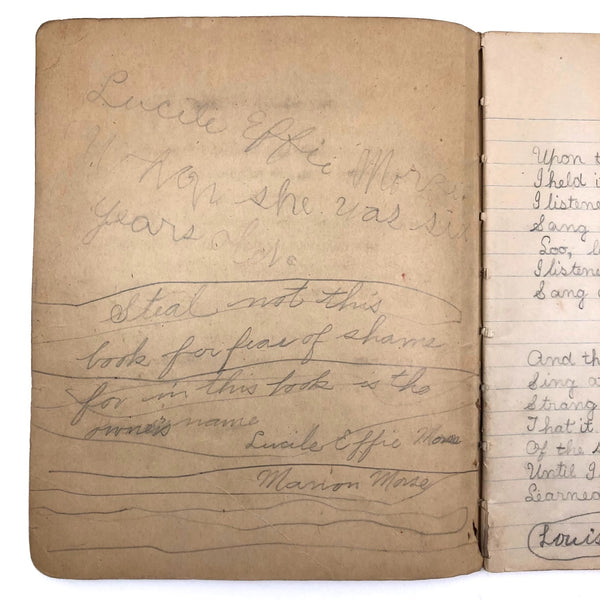 Lucile Effie Morse
When she was six
years old.
Steal not this
book for fear of shame
for in this book is the
owners name
Lucile Effie Morse
Marion Morse
Upon t
I held i
I listene
Sang
Loo, l
I listene
Sang
And th
Sing a
Strang
That it
Of the s
Until I
Learned
Louis